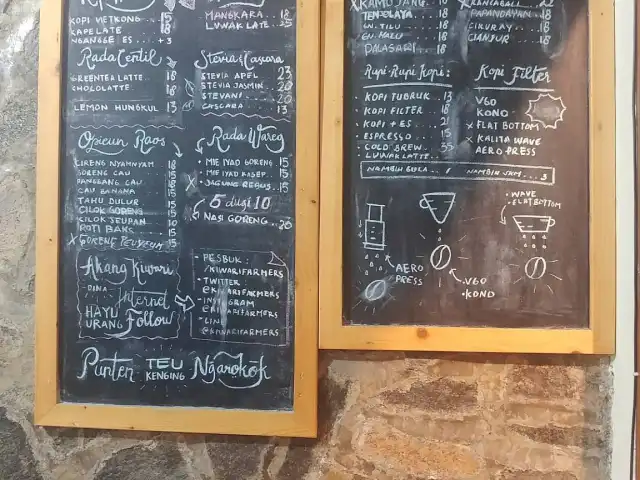 KOPI VIETKONG . 15
KAPE LATE .... 18
NGANGGE ES .... +3
Rada Centil
GREENTEA LATTE .. 18
CHOLOLATTE ... 18
LEMON HUNGKUL .. 13
MANGKARA .. 18
LUWAK LATE .. 35
Stevia & Cascara
STEVIA APEL 23
STEVIA JASMIN 20
STEVANI .... 20
CASCARA .... 13
Opieun Raos
CIRENG NYAMNYAM 18
GORENG CAU 15
CAU BANANA 15
TAHU DULUR 15
CILOK GORENG 15
CILOK SEUPAN 10
ROTI BAKS .. 15
X GORENG TEUYEUM 15
Rada Wareg
• MIE IYAD GORENG . 15
• MIE IYAD KASEP . 15
X • JAGUNG REBUS .. 15
5 dugi 10
NASI GORENG .. 20
Akang Kiwari
- DINA -
Internet
HAYU
URANG Follow
• PESBUK :
/KIWARIFARMERS
• TWITTER :
@KIWARIFARMERS
• INSTAGRAM
@KIWARIFARMERS
• LINE
@KIWARIFARMERS
Punten TEU KENGING Ngarokok
X KAMOJANG .. 18
EN. TILU ... 18
PALASARI .. 18
PAPANDAYAN . 18
CIKURAY ... 18
CIANJUR ... 18
Rupi-Rupi Kopi :
• KOPI TUBRUK . 13
KOPI FILTER . 18
• KOPI + ES .... 21
• ESPRESSO .... 15
COLD BREW .. 35
LUWAK LATTE ..
Kopi Filter
V60
KONO
X FLAT BOTTOM
X KALITA WAVE
AERO PRESS
NAMBIH JAM .. 3
AERO
PRESS
• V60
• KONO
• WAVE
• FLATBOTTOM